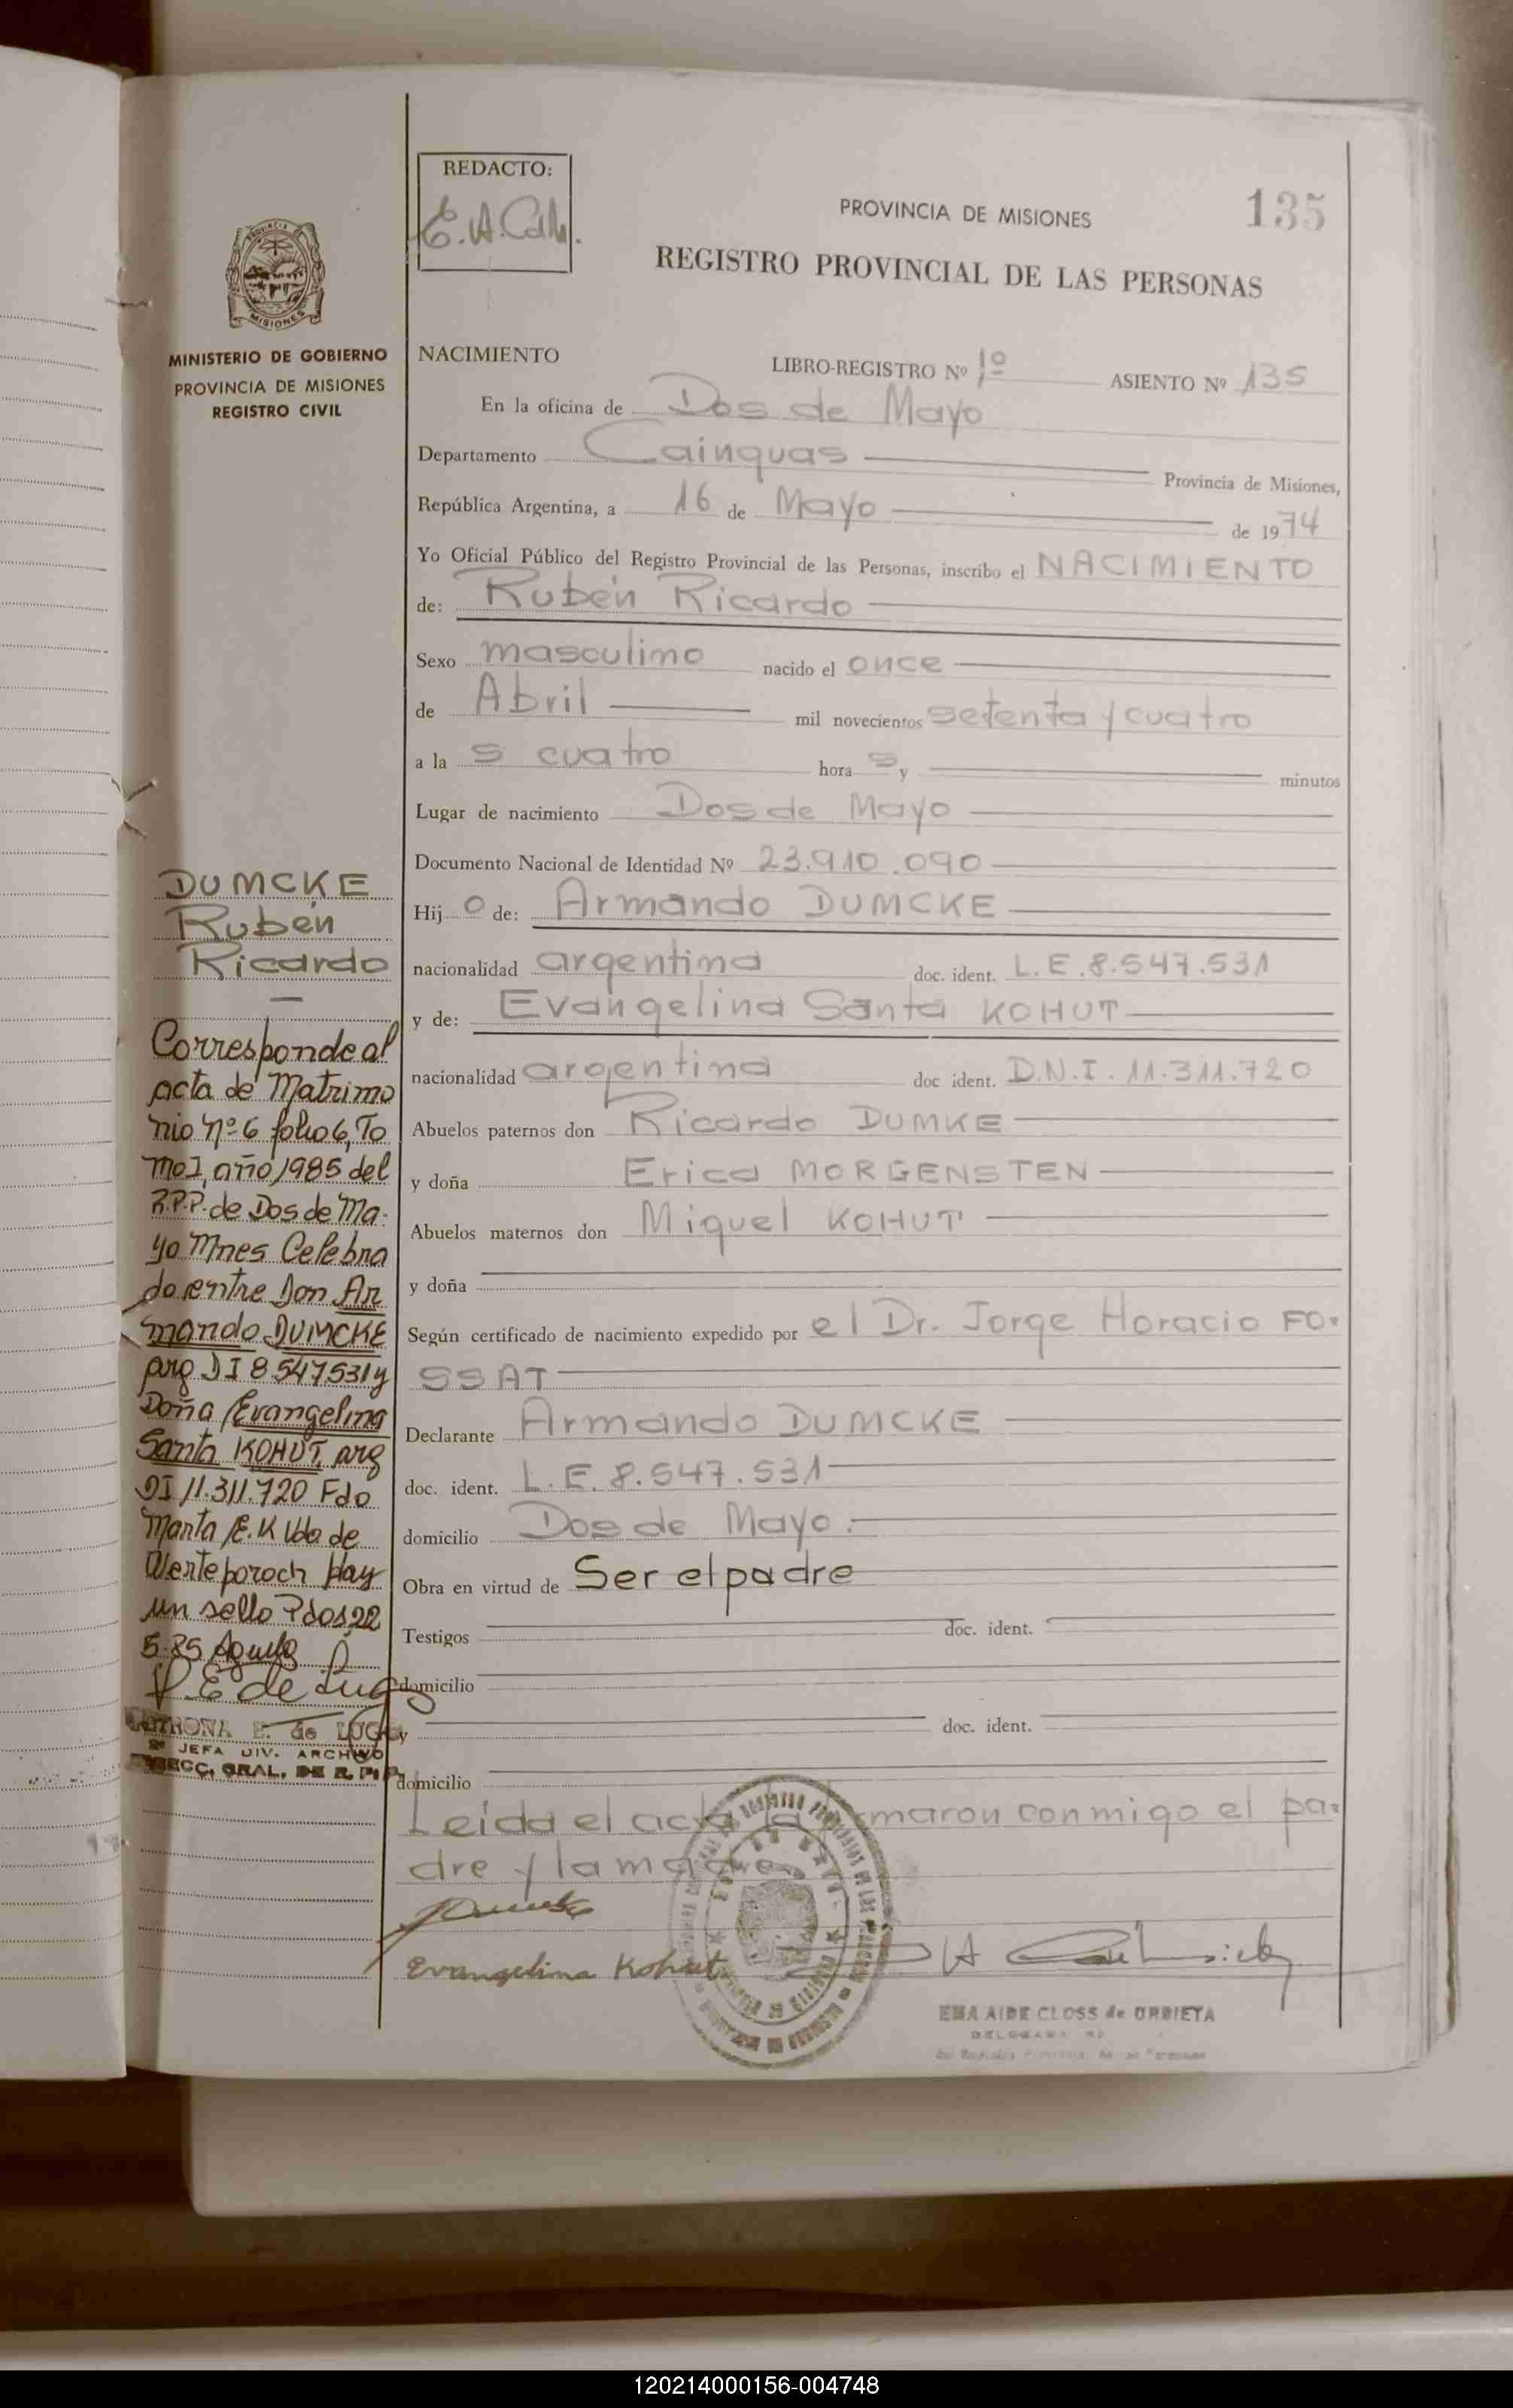 REDACTO:
E.A.Cdh.
PROVINCIA DE MISIONES
135
REGISTRO PROVINCIAL DE LAS PERSONAS
PROVINCIA DE
MISIONES
MINISTERIO DE GOBIERNO
PROVINCIA DE MISIONES
REGISTRO CIVIL
NACIMIENTO LIBRO-REGISTRO Nº 1º ASIENTO Nº 135
En la oficina de Dos de Mayo
Departamento Cainguas Provincia de Misiones,
República Argentina, a 16 de Mayo de 1974
Yo Oficial Público del Registro Provincial de las Personas, inscribo el NACIMIENTO
de: Rubén Ricardo
Sexo masculino nacido el once
de Abril mil novecientos setenta y cuatro
a la s cuatro hora s y minutos
Lugar de nacimiento Dos de Mayo
Documento Nacional de Identidad Nº 23.910.090
Hij o de: Armando DUMCKE
nacionalidad argentina doc. ident. L.E.8.547.531
y de: Evangelina Santa KOHUT
nacionalidad argentina doc ident. D.N.I. 11.311.720
Abuelos paternos don Ricardo DUMKE
y doña Erica MORGENSTEN
Abuelos maternos don Miguel KOHUT
y doña
Según certificado de nacimiento expedido por el Dr. Jorge Horacio FO-
SSAT
Declarante Armando DUMCKE
doc. ident. L.E. 8.547.531
domicilio Dos de Mayo.
Obra en virtud de Ser el padre
Testigos doc. ident.
domicilio
y doc. ident.
domicilio
Leída el acta la firmaron conmigo el pa-
dre y la madre
Evangelina Kohut
EMA AIDE CLOSS de URBIETA
DUMCKE
Rubén
Ricardo
Corresponde al
acta de Matrimo
nio nº 6 folio 6, To
mo I, año 1985 del
R.P.P. de Dos de Ma-
yo Mnes Celebra
do entre Don Ar
mando DUMCKE
arg DI 8547531 y
Doña Evangelina
Santa KOHUT, arg
DI 11.311.720 Fdo
Marta E. K Vda de
Hay
un sello Pdos 22
5-85
E de Lugo
E. de LUGO
2º JEFA DIV. ARCHIVO
DIRECC. GRAL. DE R. P. P.
120214000156-004748